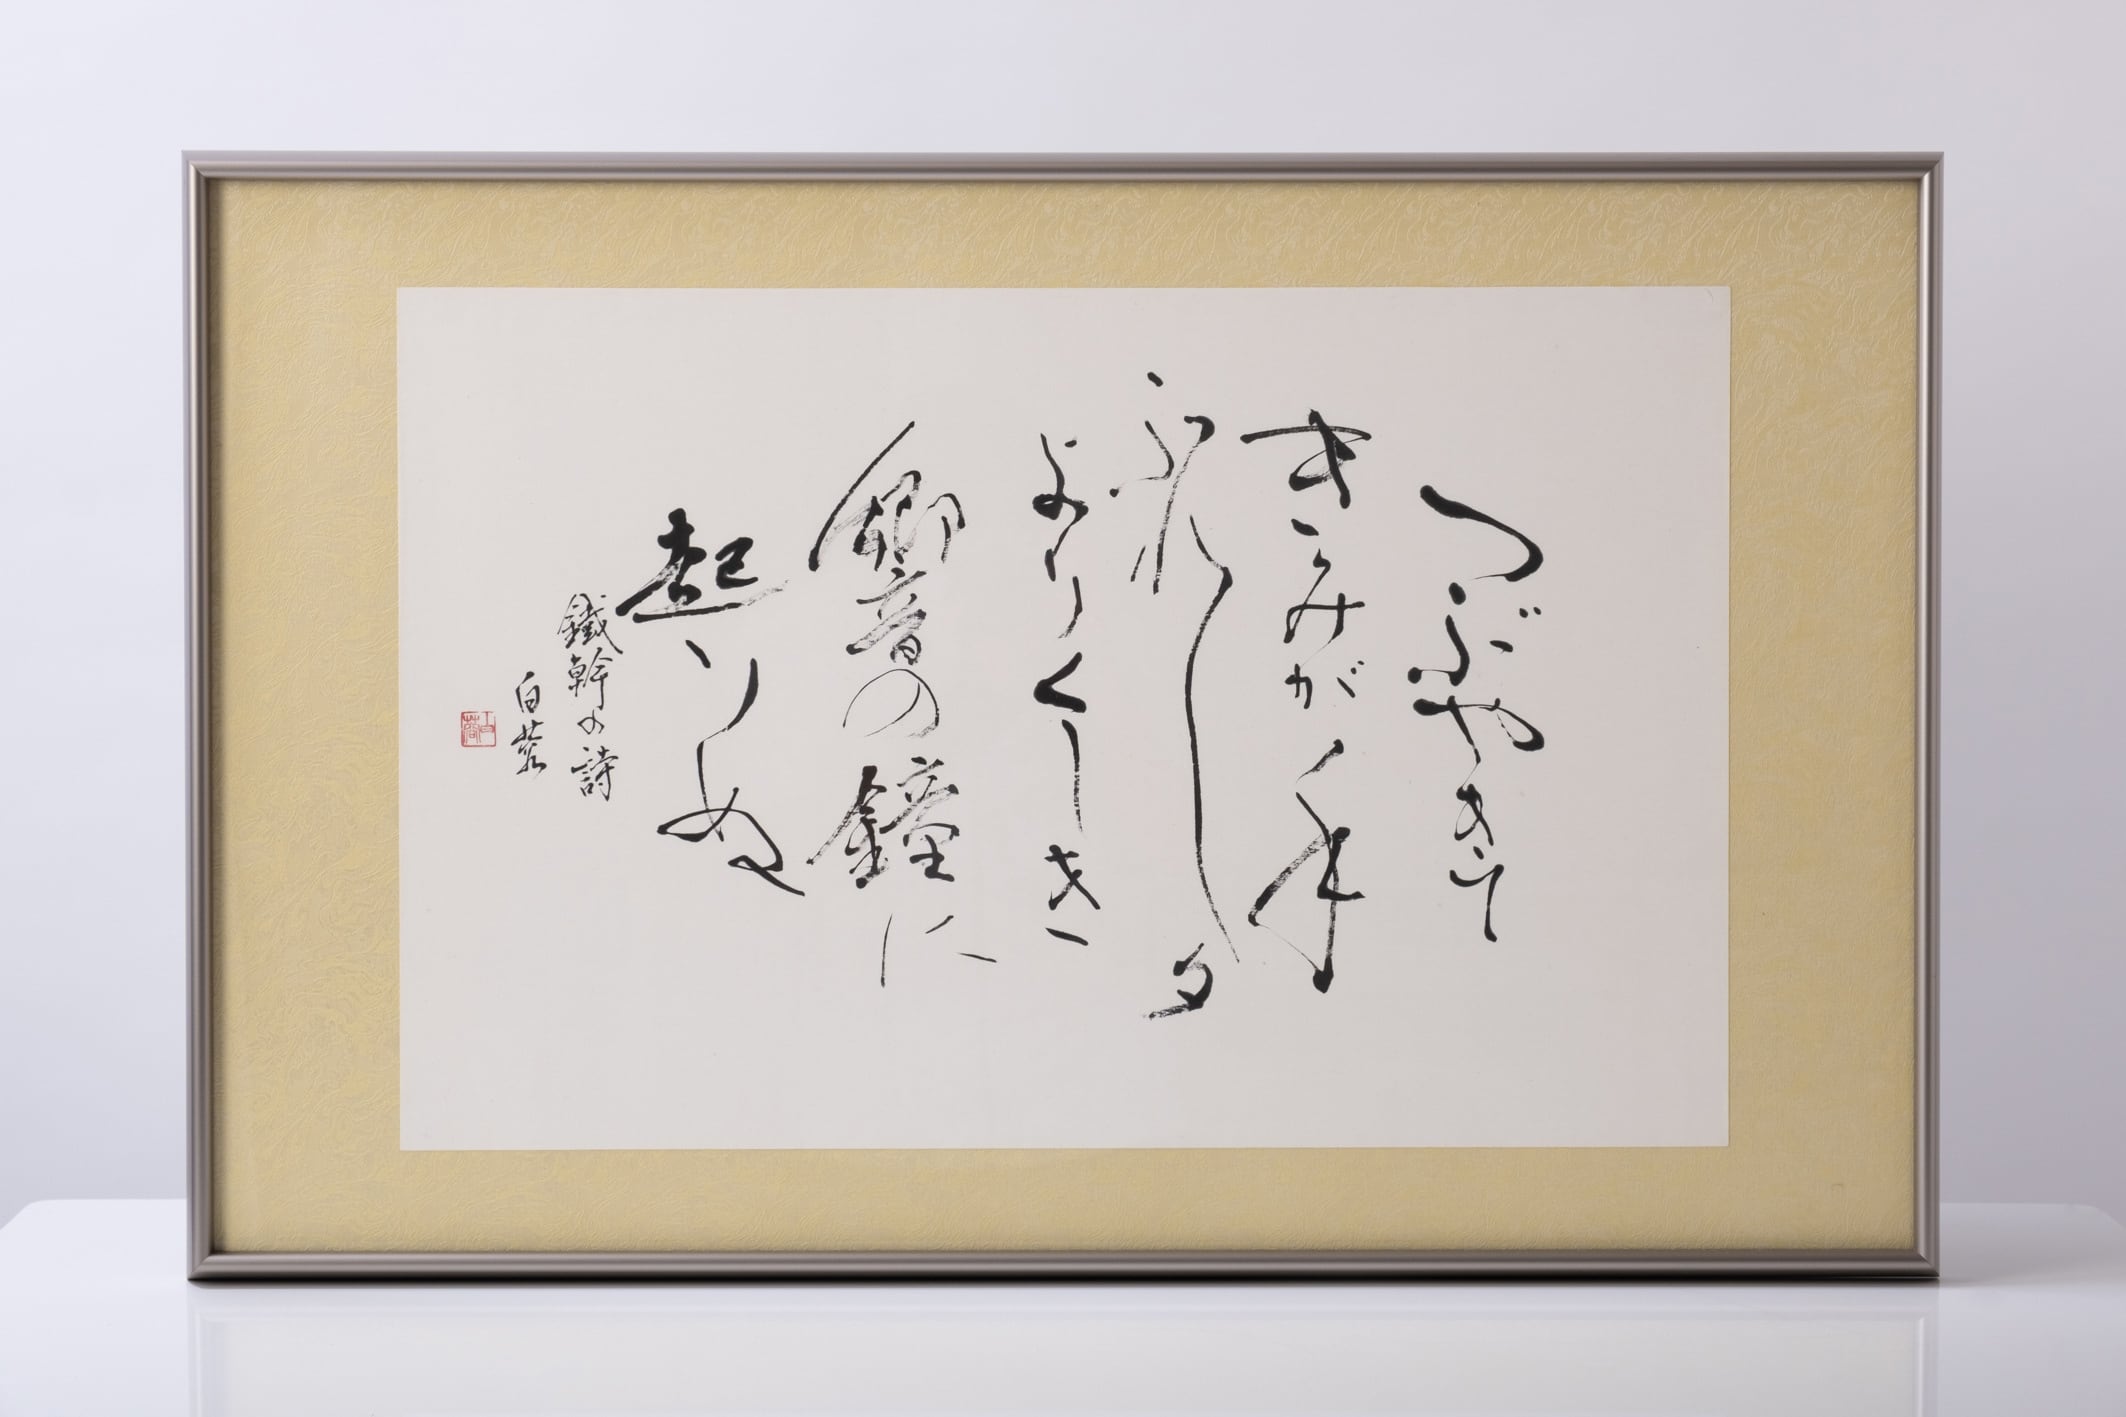 つぶやきて
きみが手
ふれし夕
よりくしき
響の鐘に
起りぬ
鐵幹の詩